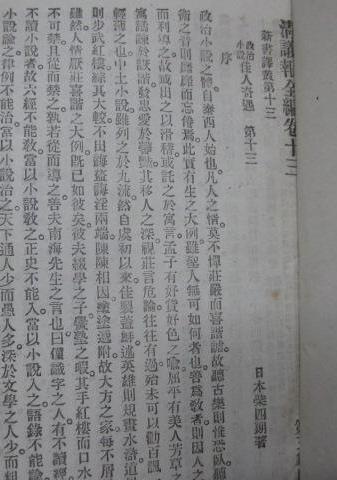 清議報全編卷十三
新書譯叢第十三
政治小說 佳人奇遇 第十三
日本柴四郎著
序
政治小說之體自泰西人始也凡人之情莫不憚莊嚴而喜諧謔故聽古樂則惟恐臥聽
衛之音則靡靡而忘倦焉此實有生之大例雖聖人無可如何者也善爲敎者則因人之
而利導之故或出之以滑稽或託之於寓言孟子有好貨好色之喻屈平有美人芳草之
寓譎諫於詼諧發忠愛於馨艷其移人之深視莊言危論往往有過殆未可以勸百諷
輕薄之也中土小說雖列之於九流然自虞初以來佳製蓋鮮述英雄則規畫水滸道
則步武紅樓綜其大較不出誨盜誨淫兩端陳陳相因塗塗遞附故大方之家每不屑
雖然人情厭莊喜諧之大例既已如彼矣彼夫綴學之子黌塾之暇其手紅樓而口水
不可禁且從而禁之孰若從而導之善夫南海先生之言也曰僅識字之人有不讀經
不讀小說者故六經不能敎當以小說敎之正史不能入當以小說入之語錄不能諭
小說諭之律例不能治當以小說治之天下通人少而愚人多深於文學之人少而粗